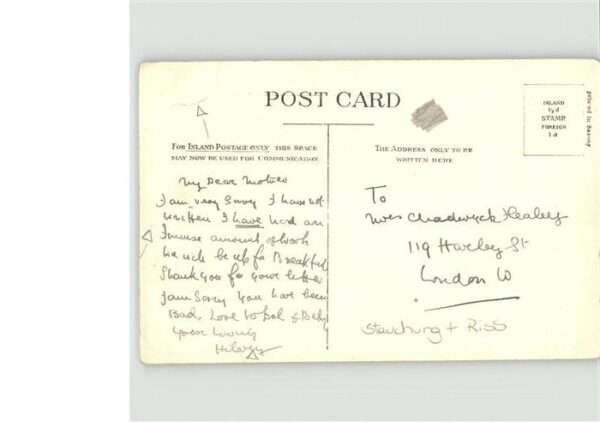 POST CARD
FOR INLAND POSTAGE ONLY THIS SPACE
MAY NOW BE USED FOR COMMUNICATION
THE ADDRESS ONLY TO BE
WRITTEN HERE
INLAND
½d
STAMP
FOREIGN
1d
My Dear Mother
I am very Sorry I have not
written I have had an
amount of work
be up for Breakfast
Thank you for your letter
I am Sorry you have been
Bad. Love to Pol & Baby
your loving
Hilary
To
Mrs Chadwyck Healey
119 Harley St
London W
Stauchung + Riss